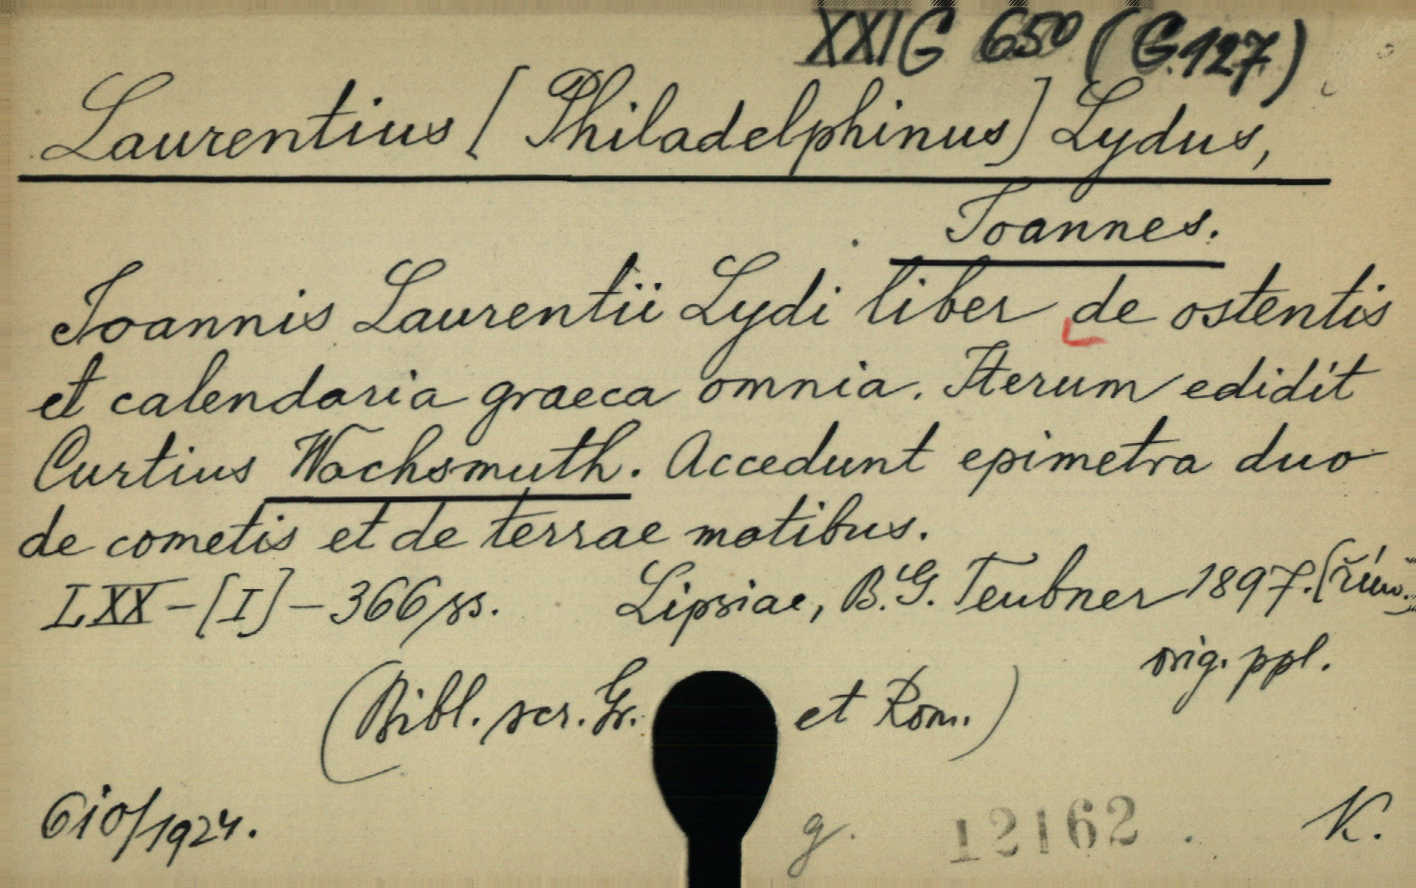 XXIG 650 (G.127)
Laurentius [Philadelphinus] Lydus,
Ioannes.
Ioannis Laurentii Lydi liber de ostentis
et calendaria graeca omnia. Iterum edidit
Curtius Wachsmuth. Accedunt epimetra duo
de cometis et de terrae motibus.
LXX-[I]-366 ss. Lipsiae, B.G. Teubner 1897.
orig. ppl.
(Bibl. scr. Gr. et Rom.)
610/1924.
g. 12162. K.